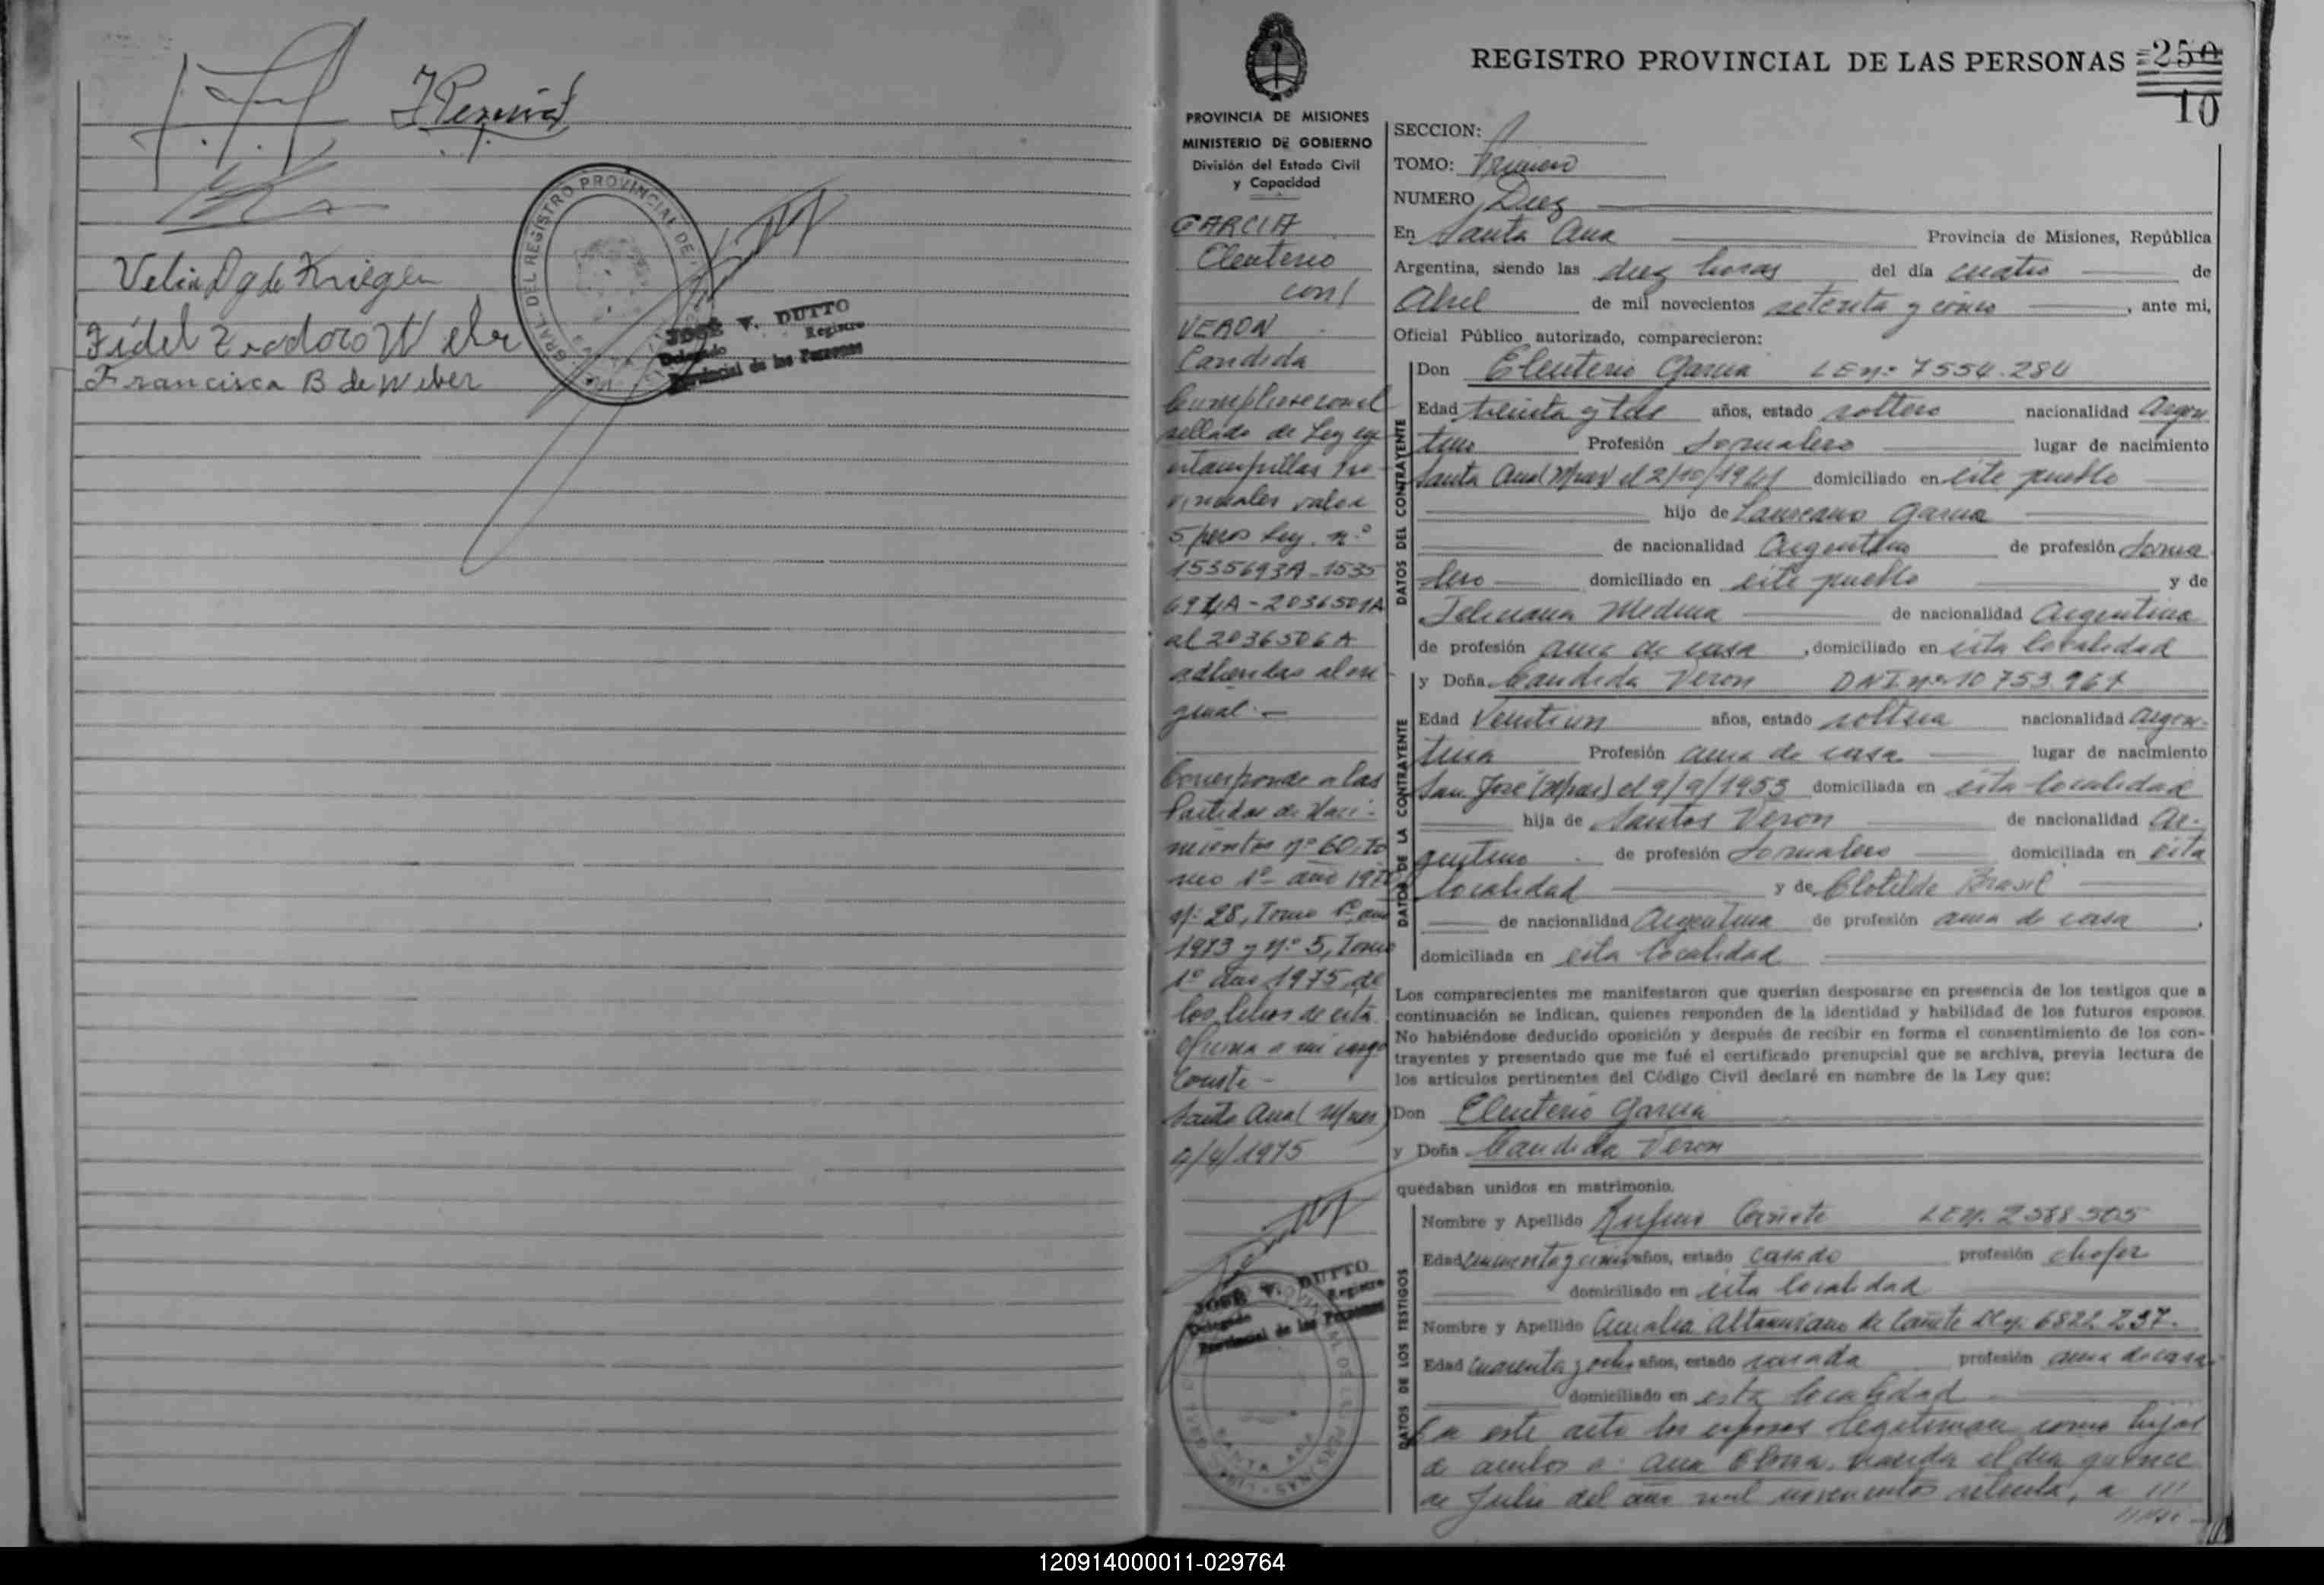 Velia D g de Kriegen
Fidel Teodoro Weber
Francisca B de Weber
GRAL. DEL REGISTRO PROVINCIAL DE
JOSÉ V. DUTTO
Delegado Registro
Provincial de las Personas
PROVINCIA DE MISIONES
MINISTERIO DE GOBIERNO
División del Estado Civil
y Capacidad
GARCIA
Eleuterio
con/
VERON
Candida
sellado de Ley en
estampillas pro
vinciales valor
5 pesos Ley. nº
1535693A-1535
694A-2036501A
al 2036506A
adheridas al ori
ginal.-
Corresponde a las
Partidas de Naci-
mientos nº 60, To
mo 1º año 197
nº 28, Tomo 1º año
1973 y nº 5, Tomo
1º año 1975 de
los libros de esta
oficina a mi cargo
Conste-
Santa Ana (Mnes)
4/4/1975
JOSÉ V. DUTTO
Delegado Registro
Provincial de las Personas
SANTA ANA
REGISTRO PROVINCIAL DE LAS PERSONAS =250
10
SECCION:
TOMO: Primero
NUMERO Diez
En Santa Ana Provincia de Misiones, República
Argentina, siendo las diez horas del día cuatro de
Abril de mil novecientos setenta y cinco, ante mi,
Oficial Público autorizado, comparecieron:
DATOS DEL CONTRAYENTE
Don Eleuterio Garcia LE nº 7554.284
Edad treinta y tres años, estado soltero nacionalidad Argen
tino Profesión Jornalero lugar de nacimiento
Santa Ana (Mnes) el 2/10/1941 domiciliado en este pueblo
hijo de Laureano Garcia
de nacionalidad Argentino de profesión Jorna
lero domiciliado en este pueblo y de
Medina de nacionalidad Argentina
de profesión ama de casa, domiciliado en esta localidad
DATOS DE LA CONTRAYENTE
y Doña Candida Veron DNI nº 10 753.967
Edad Veintiun años, estado soltera nacionalidad Argen-
tina Profesión ama de casa lugar de nacimiento
San José (Mnes) el 9/9/1953 domiciliada en esta localidad
hija de Santos Veron de nacionalidad Ar-
gentino de profesión Jornalero domiciliada en esta
localidad y de Clotilde Brasil
de nacionalidad Argentina de profesión ama de casa,
domiciliada en esta localidad
Los comparecientes me manifestaron que querían desposarse en presencia de los testigos que a
continuación se indican, quienes responden de la identidad y habilidad de los futuros esposos.
No habiéndose deducido oposición y después de recibir en forma el consentimiento de los con-
trayentes y presentado que me fué el certificado prenupcial que se archiva, previa lectura de
los artículos pertinentes del Código Civil declaré en nombre de la Ley que:
Don Eleuterio Garcia
y Doña Candida Veron
quedaban unidos en matrimonio.
DATOS DE LOS TESTIGOS
Nombre y Apellido Rufino Cañete LE nº. 2588505
Edad cincuenta y cinco años, estado casado profesión chofer
domiciliado en esta localidad
Nombre y Apellido Amalia Altamirano de Cañete 6822 237.
Edad cuarenta y ocho años, estado casada profesión ama de casa
domiciliado en esta localidad
En este acto los esposos legitiman como hijos
de ambos a: Ana nacida el dia quince
de Julio del año mil novecientos setenta, a ///
120914000011-029764